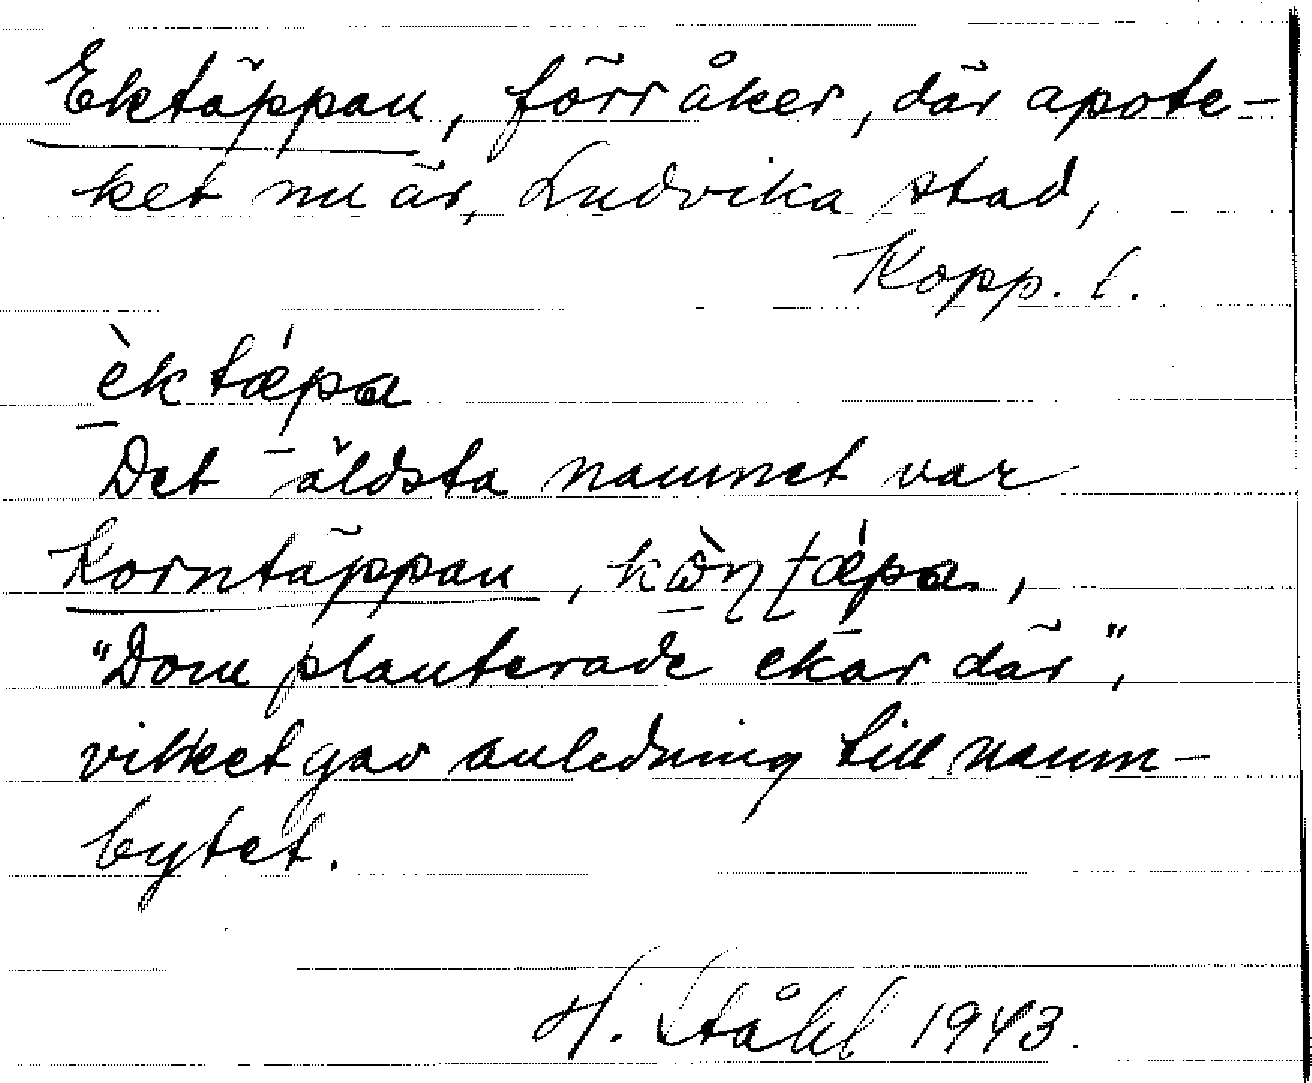 Ektäppan, förr åker, där apote-
ket nu är, Ludvika stad,
Kopp. l.
èktǽpa
Det äldsta namnet var
Korntäppan,
"Dom planterade ekar där",
vilket gav anledning till namn-
bytet.
H. Ståhl 1943.